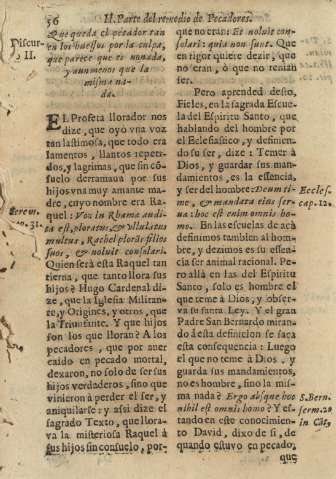 56
II. Parte del remedio de Pecadores.
Discur.
II.
Que queda el pecador tan
en los huessos por la culpa,
que parece que es nonada,
y aun menos que la
misma na-
da.
EL Profeta llorador nos
dize, que oyò vna voz
tan lastimosa, que todo era
lamentos, llantos repeti-
dos, y lagrimas, que sin cõ-
suelo derramaua por sus
hijos vna muy amante ma-
dre, cuyo nombre era Ra-
quel: Vox in Rhama audi-
ta est, ploratus, & vllulatus
multus, Rachel plorãs filios
suos, & noluit consolari.
Ierem.
31.
Quien serà esta Raquel tan
tierna, que tanto llora sus
hijos? Hugo Cardenal di-
ze, que la Iglesia Militan-
te, y Origines, y otros, que
la Triunfante. Y que hijos
son los que lloran? A los
pecadores, que por auer
caido en pecado mortal,
dexaron, no solo de ser sus
hijos verdaderos, sino que
vinieron à perder el ser, y
aniquilarse: y assi dize el
sagrado Texto, que llora-
va la misteriosa Raquel à
sus hijos sin consuelo, por-
que no eran: Et noluit con-
solari: quia non sunt. Que
en rigor quiere dezir, que
no eran, ò que no tenian
ser.
Pero aprended desto,
Fieles, en la sagrada Escue-
la del Espiritu Santo, que
hablando del hombre por
el Eclesiastico, y definien-
do su ser, dize: Teme à
Dios, y guardar sus man-
damientos, es la essencia,
y ser del hombre: Deum ti-
me, & mandata eius ser-
ua: hoc est enim omnis ho-
mo.
Eccles.
cap. 12.
En las escuelas de acà
definimos tambien al hom-
bre, y dezimos es su essen-
cia ser animal racional. Pe-
ro allà en las del Espiritu
Santo, solo es hombre el
que teme à Dios, y obser-
va su santa Ley. Y el gran
Padre San Bernardo miran-
do à esta definicion se saca
esta consequencia: Luego
el que no teme à Dios, y
guarda sus mandamientos,
no es hombre, sino la mis-
ma nada? Ergo absque hoc
nihil est omnis homo?
S. Bern.
serm. 20.
in Cãt.
Y es-
tando en este conocimien-
to David, dixo de si, de
quando estuvo en pecado:
que